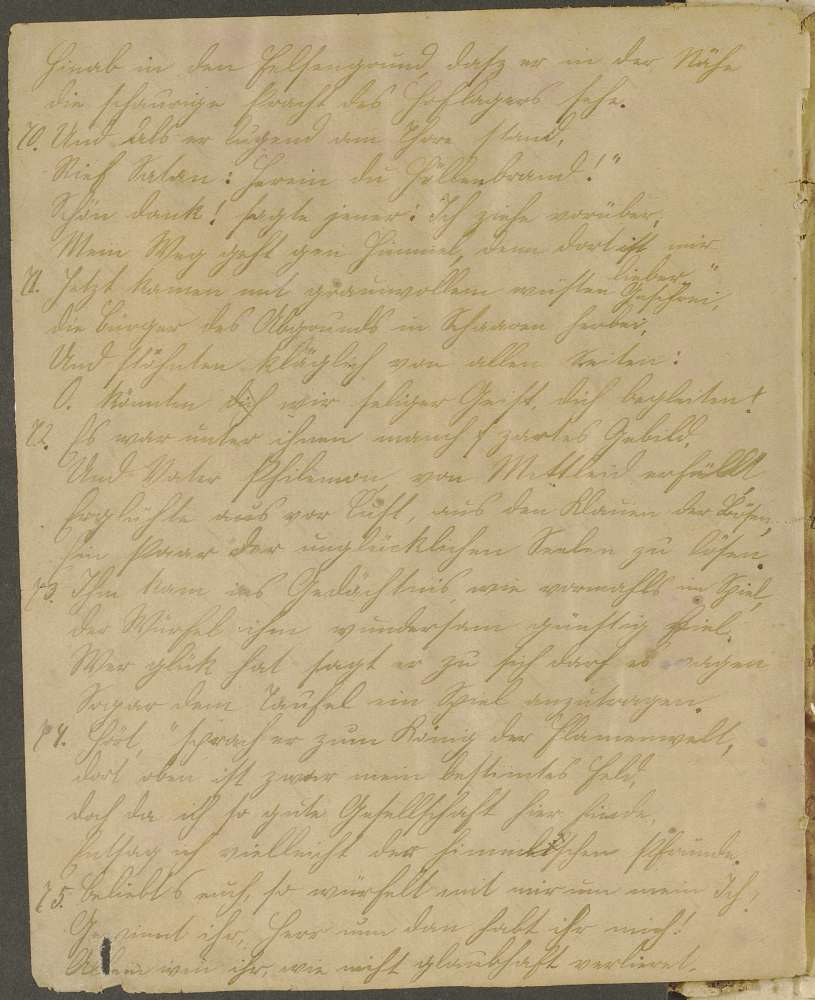 Hinab in den Felsengrund, dasz er in der Nähe
die schaurige Pracht des Hoflagers sehe.
70. Und als er lugend am Thore stand,
Rief Satan: Herein du Höllenbrand!"
Schön dank! sagte jener: Ich ziehe vorüber,
Mein Weg geht gen Himmel, denn dort ist mir
lieber."
71. Jetzt kamen mit graunvollem wüsten Geschrei,
die Bürger des Abgrunds in Schaaren herbei,
Und stöhnten kläglich von allen Seiten:
O. könnten dich wir seliger Geist, dich begleiten!
72. Es war unter ihnen manch zartes Gebild,
Und Vater Philimon, von Mittleid erfüllt
Erglühte aus vor Lust, aus den Klauen der Bösen,
Ein Paar der unglücklichen Seelen zu lösen.
73. Ihm kam ins Gedächtnis, wie vormahls im Spiel,
der Würfel ihm wundersam günstig fiel.
Wer glük hat sagt er zu sich darf es wagen
Sogar dem Taufel ein Spiel anzutragen.
74. Hört, "sprach er zum König der Flamenwelt,
dort oben ist zwar mein bestimtes Feld,
doch da ich so gute Gesellschaft hier finde,
Entsag ich vielleicht der himmlischen Pfründe.
75. Beliebt's euch, so würfelt mit mir um mein Ich,
Gewinnt ihr, Herr nun dan habt ihr mich!
Allein wen ihr, wie nicht glaubhaft verlieret,